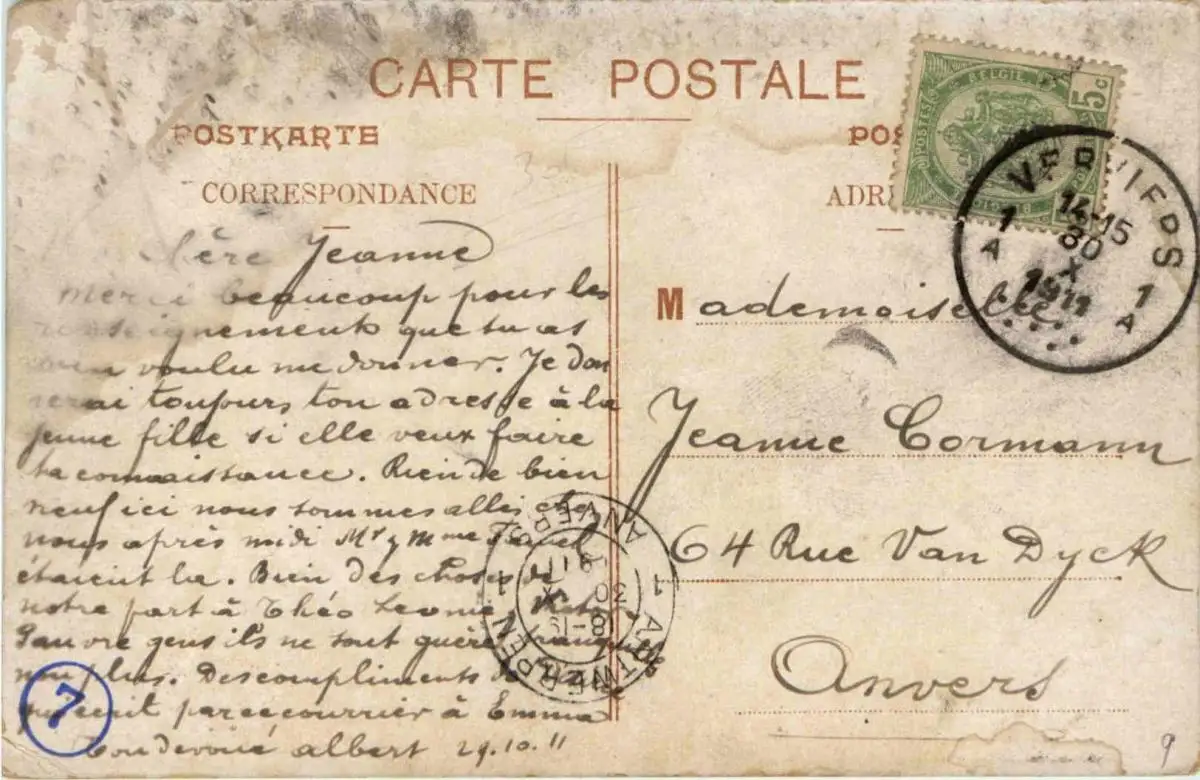 CARTE POSTALE
POSTKARTE
CORRESPONDANCE
Chère Jeanne
Merci beaucoup pour les
renseignements que tu as
bien voulu me donner. Je don
nerai toujours ton adresse à la
jeune fille si elle veux faire
ta connaissance. Rien de bien
neuf ici nous sommes allés chez
nous après midi Mr & Mme
étaient la. Bien des choses de
notre part à Théo Leonie
Pauvre gens ils ne sont guère
non plus. Des compliments de
par ce courrier à Emma
Ton devoué Albert 29.10.11
7
POS
ADR
BELGIE
POSTES
5c
VERVIERS
1 1
A A
14-15
30
X
1911
Mademoiselle
Jeanne Cormann
64 Rue Van Dyck
Anvers
ANTWERPEN
ANVERS
1 1
30
9